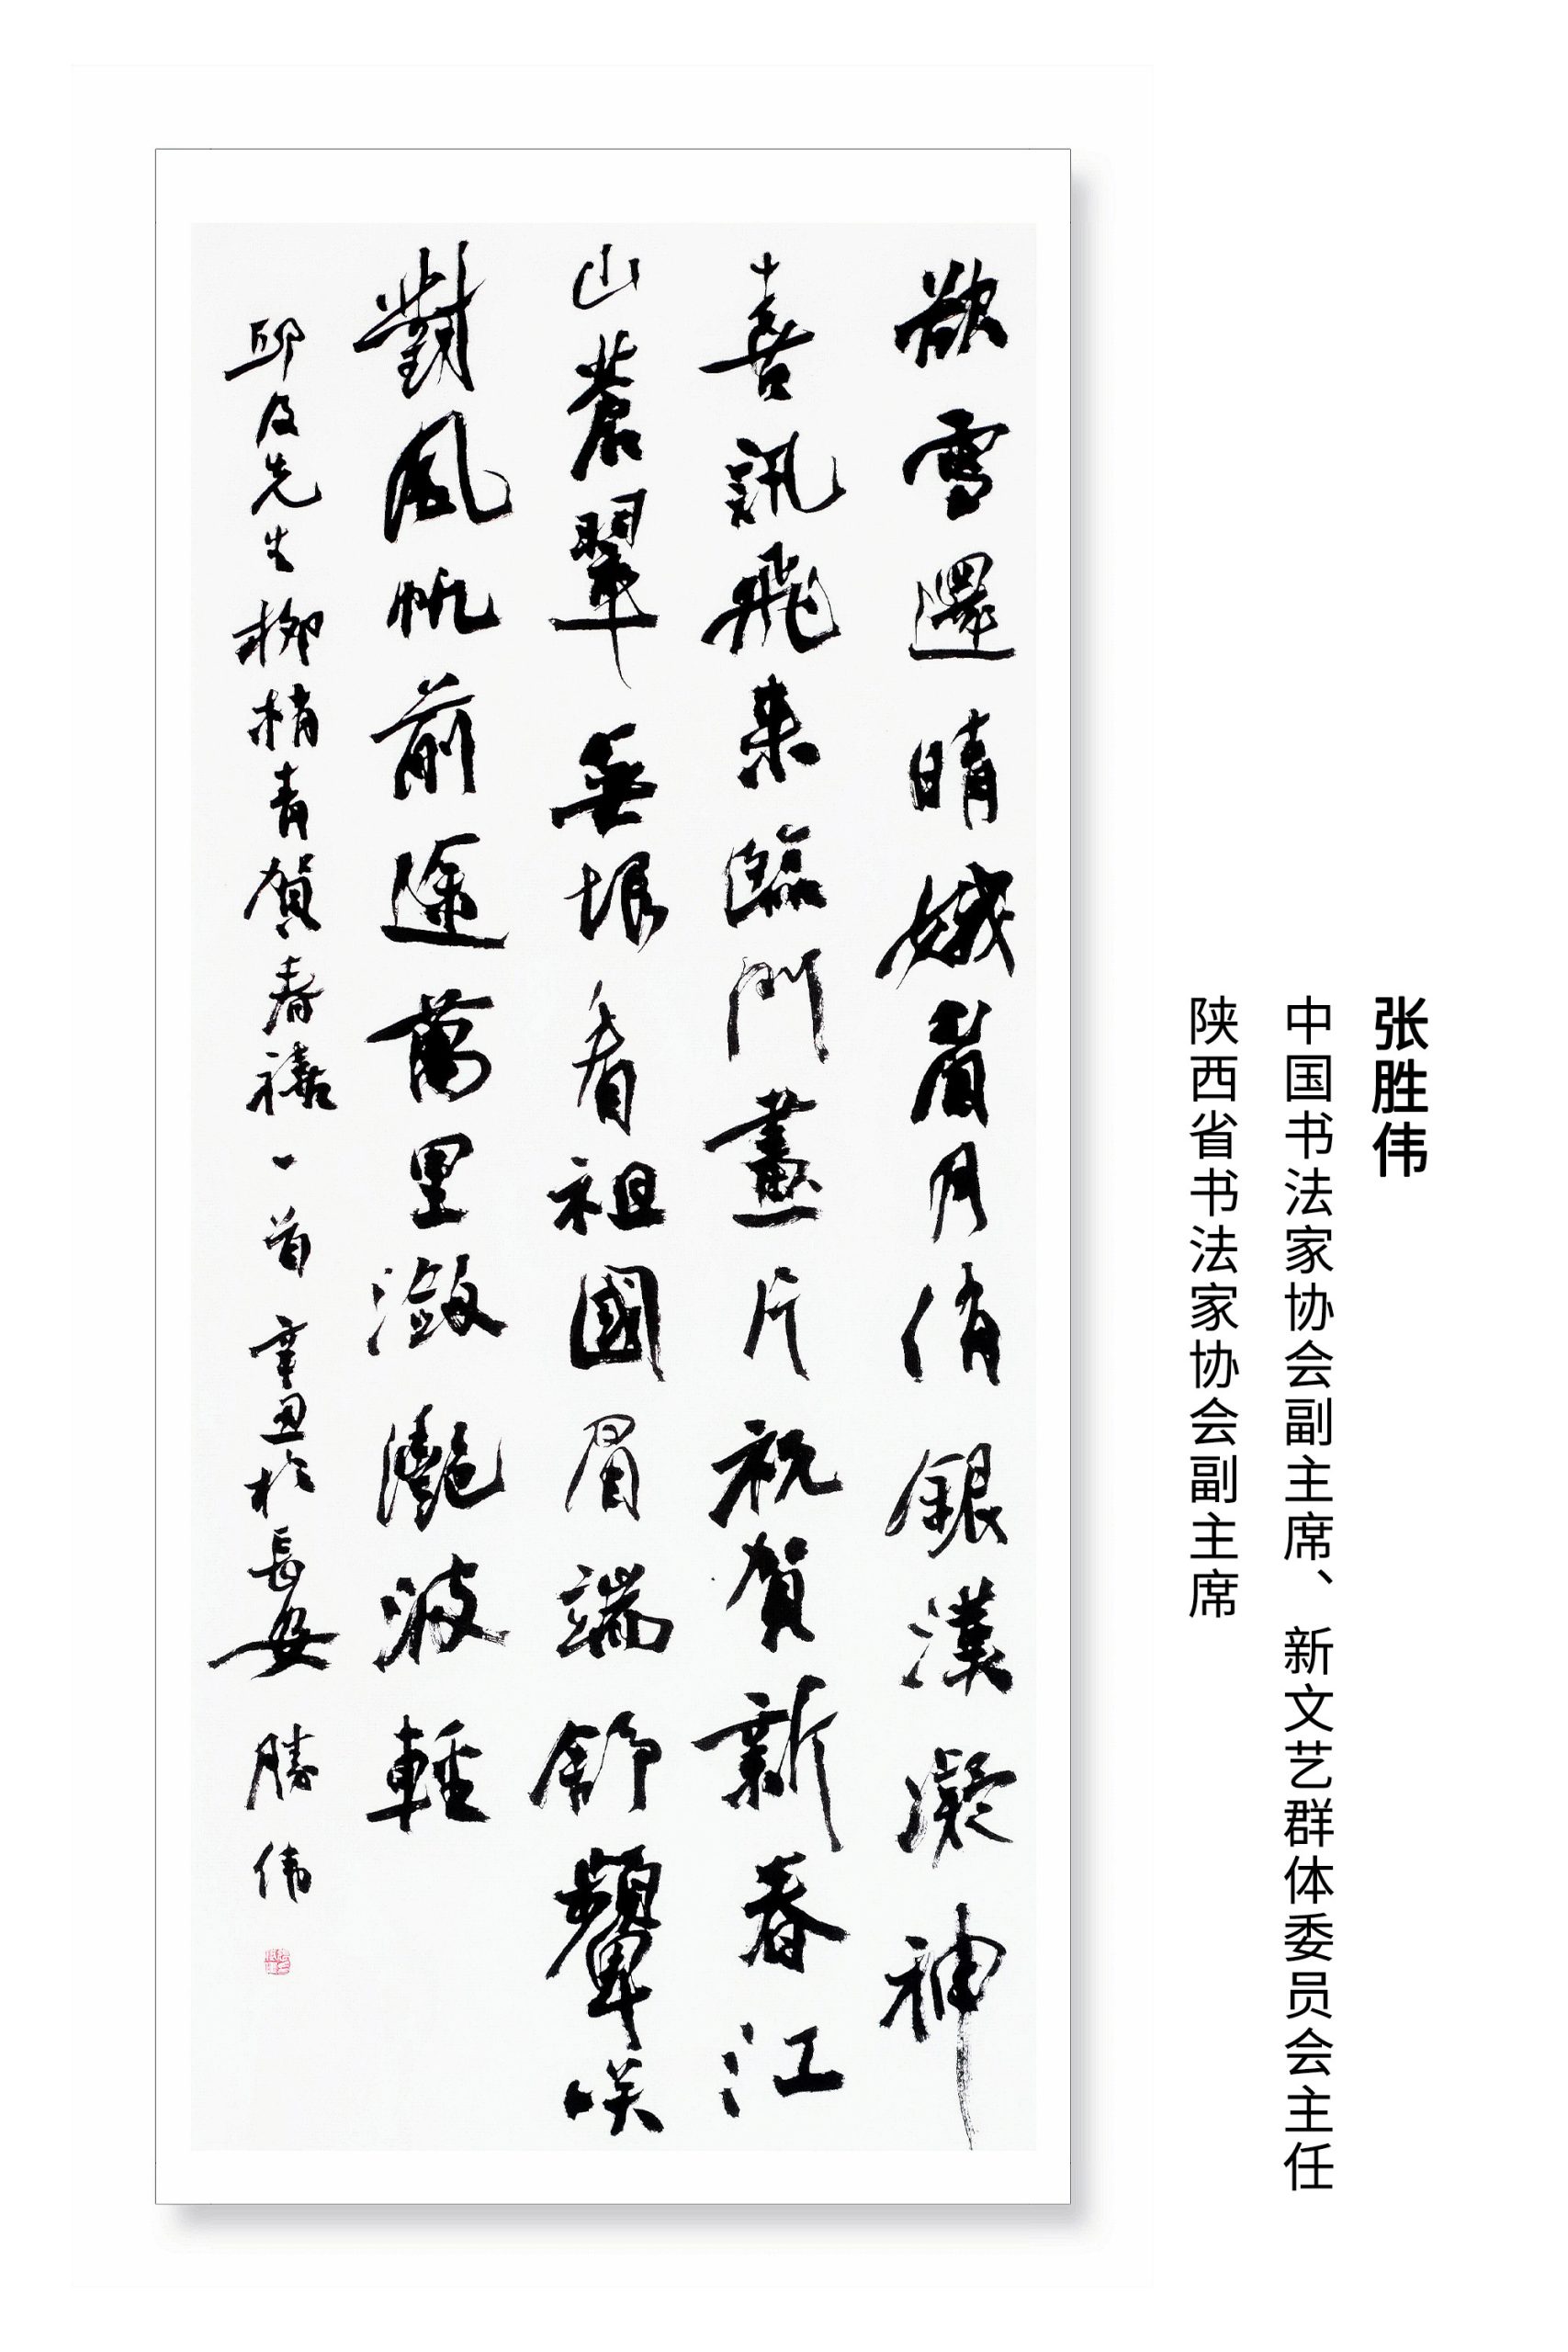 张胜伟
中国书法家协会副主席、新文艺群体委员会主任
陕西省书法家协会副主席
欲雪還晴娥眉月俏銀漢凝神
喜訊飛来臨門畫片祝賀新春江
山蒼翠無垠看祖國眉端舒顰咲
對風帆前途萬里瀲灩波輕
邱及先生柳梢青賀春禧一首辛丑於長安勝伟